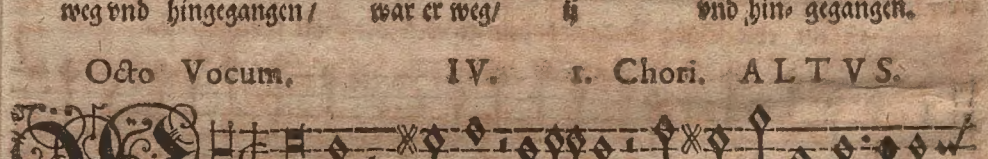 weg vnd hingegangen / war er weg / ij vnd hin⸗ gegangen.
Octo Vocum. IV. 1. Chori. ALTVS.